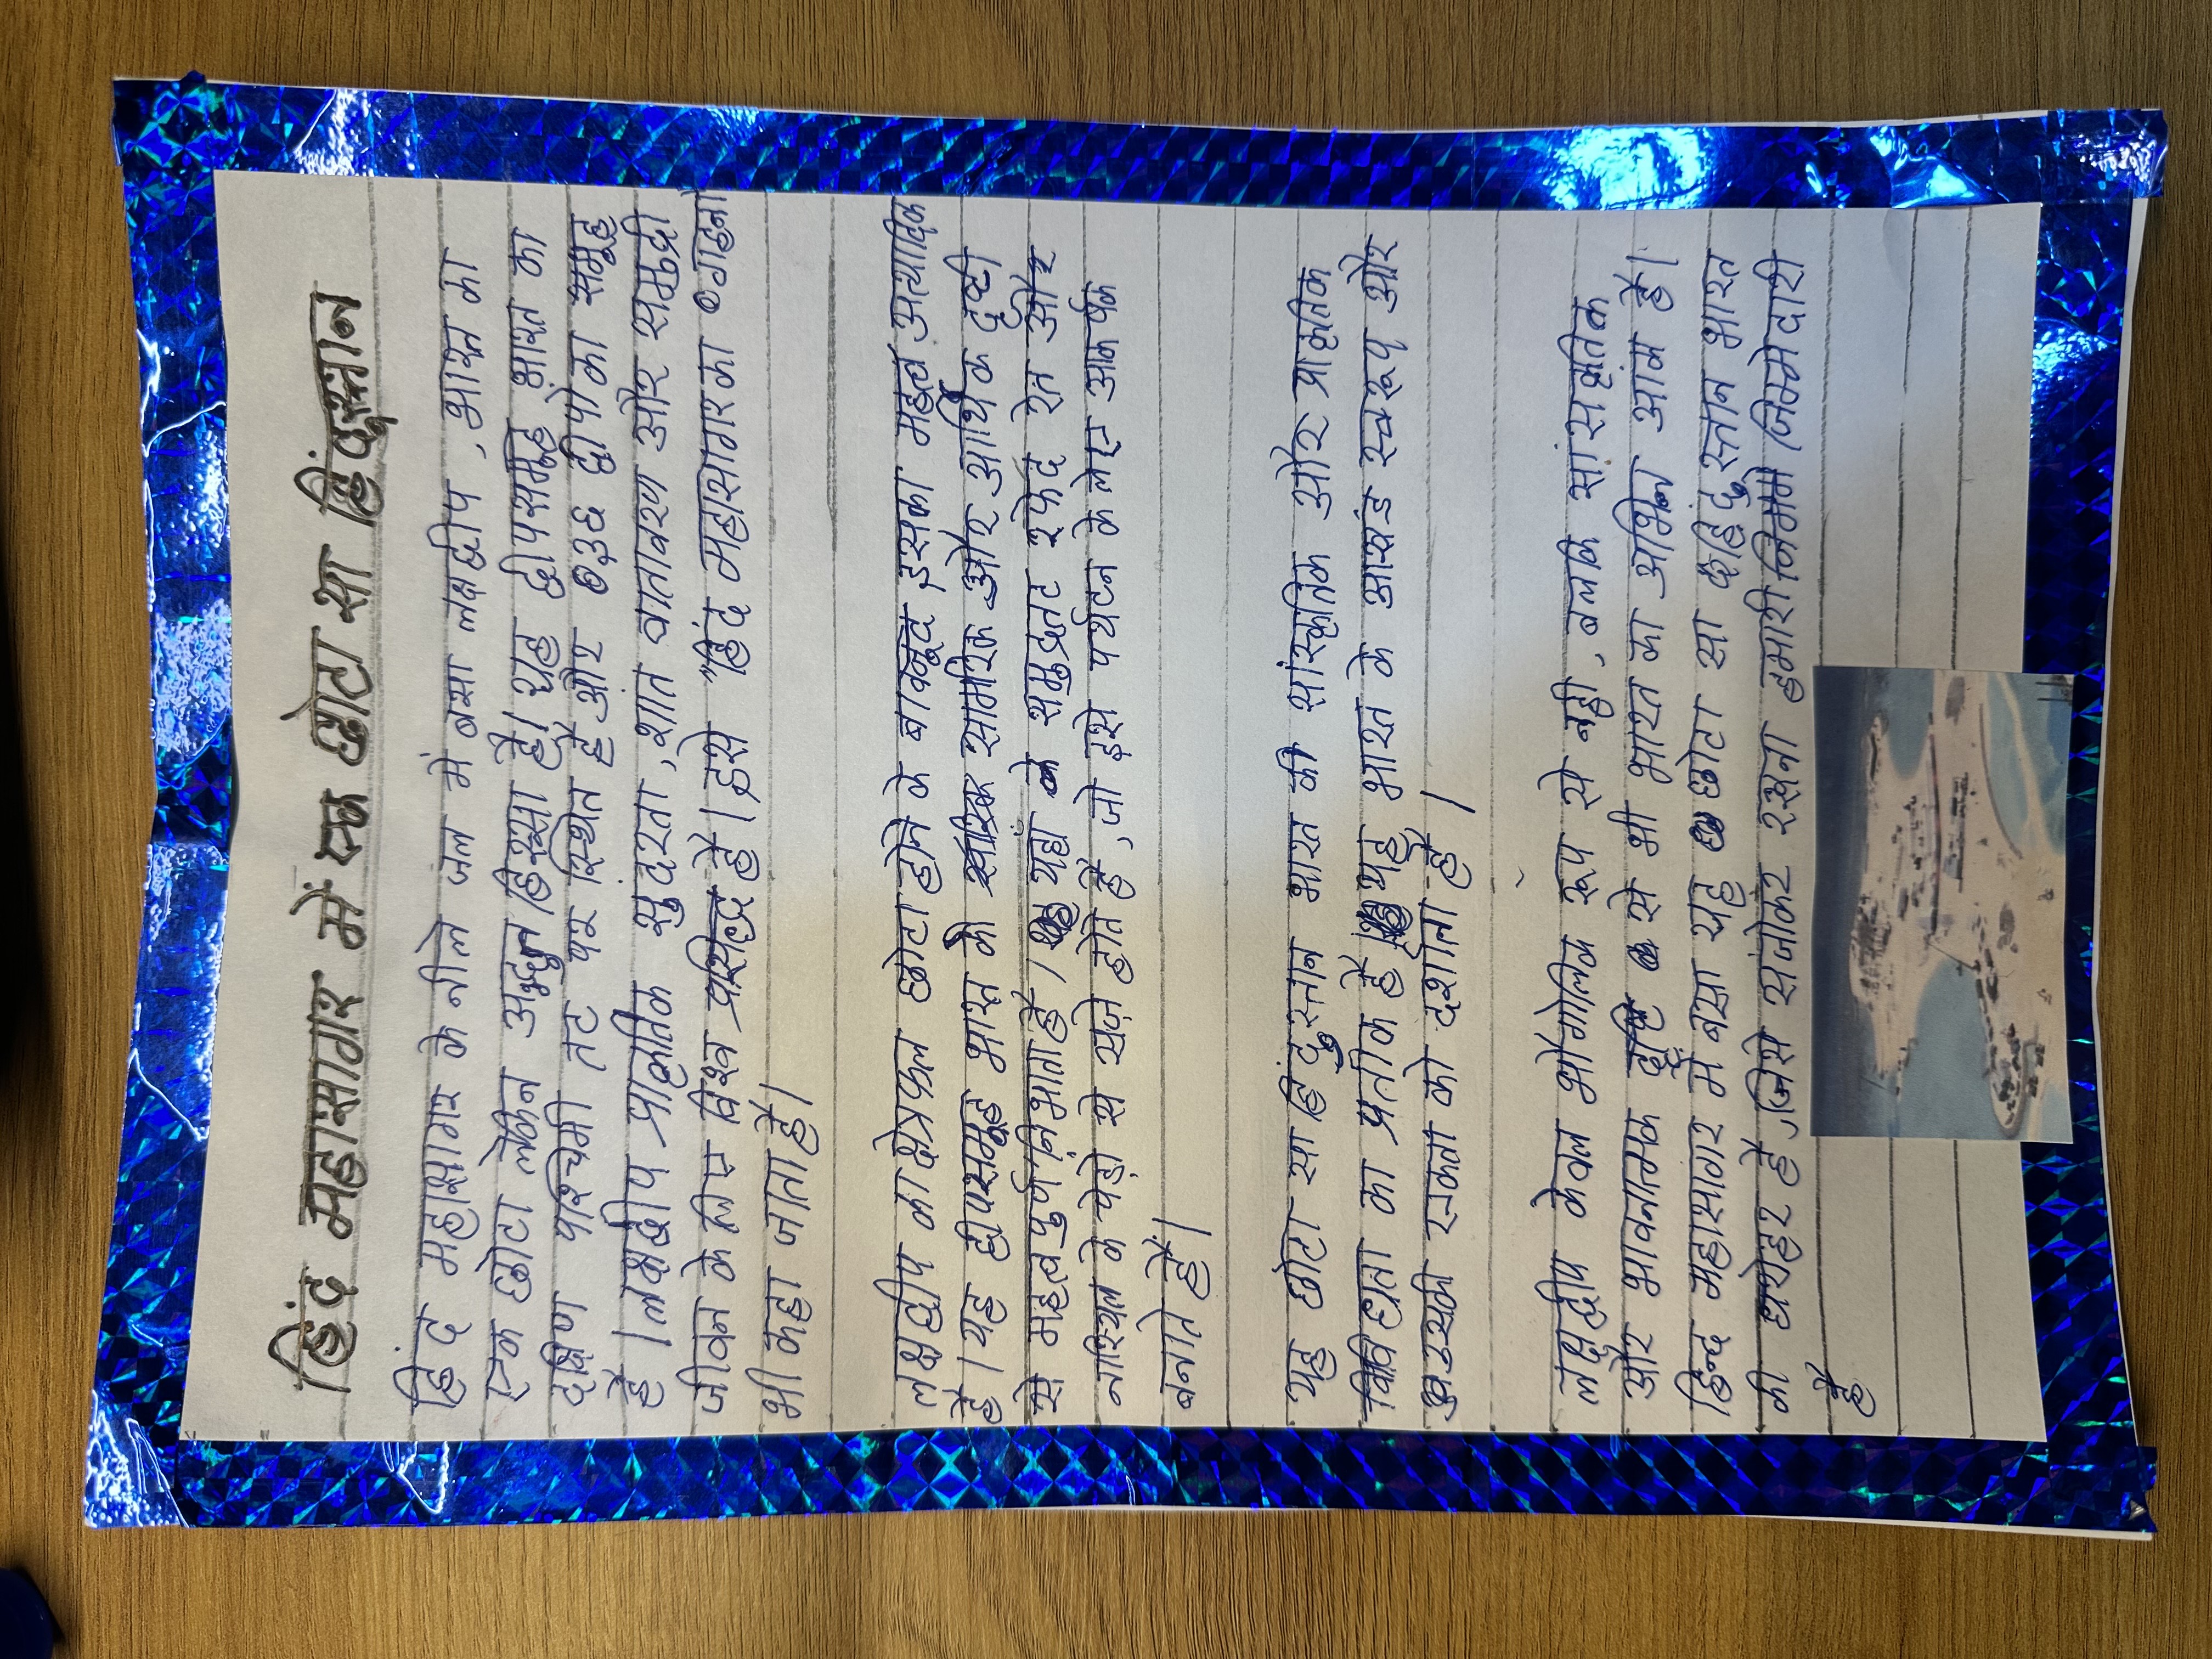 हिंद महासागर में एक छोटा सा हिंदूस्तान
हिंद महासागर के नीले जल में बसा लक्षद्वीप , भारत का
एक छोटा लेकिन अद्भुत हिस्सा है। यह द्वीपसमूह भारत का
दक्षिण पश्चिमी तट पर स्थित है और ३६ द्वीपों का समूह
है । लक्षद्वीप प्राकृतिक सुंदरता , शांत वातावरण और समुद्री
जीवन के लिए विश्व प्रसिद्ध है । इसे "हिंद महासागर का गहना"
भी कहा जाता है।
लक्षद्वीप का क्षेत्रफल छोटा होने के बावजूद इसका महत्व अत्यादिक
है । यह द्वीपसमूह भारत की सामरिक और आर्थिक दृष्टी
से महत्वपुर्ण निभाता है । यहाँ के समुद्रतट स्फेद रेत और
नारियल के पेड़ों से सज़े होते है , जो इसे पर्यटन के लिए आकर्षक
बनाते हैं।
यह छोटा सा हिंदुस्तान भारत की सांस्कृतिक और प्राकृतिक
विविधता का प्रतीक है । यह भारत के आखंड स्वरूप और
उसकी एकता को दर्शाता है ।
लक्षद्वीप केवल भौगोलिक रूप से नही , बलकि सांसकृतिक
और भावनात्मक दृष्टि से भी भारत का अभिन्न आंग है।
हिन्द महासागर में बसा यह छोटा सा हिंदुस्तान भारत
की धरोहर है , जिसे संजोकर रखना हमारी जिम्मेदारी
है